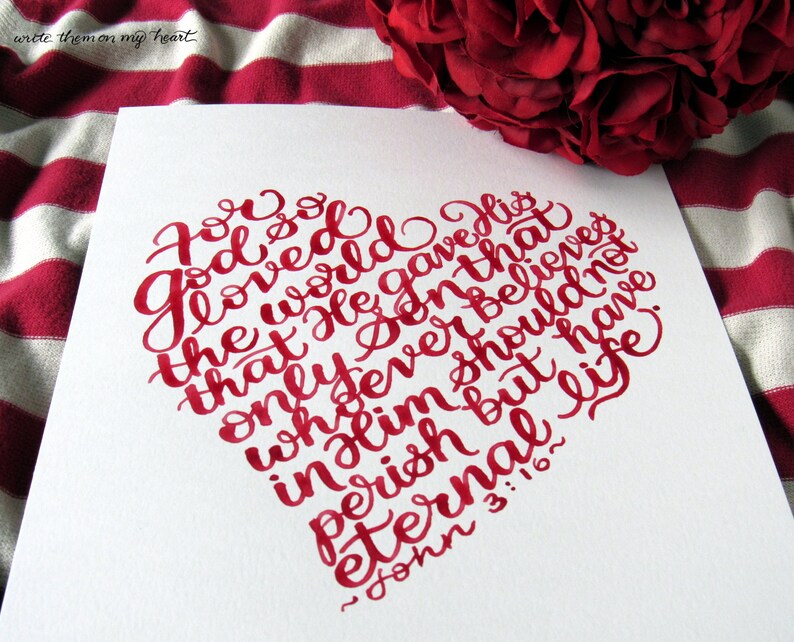 write them on my heart
For
God so
loved
the world
that He gave His
only Son that
whoever believes
in Him should not
perish but have
eternal life.
~John 3:16~